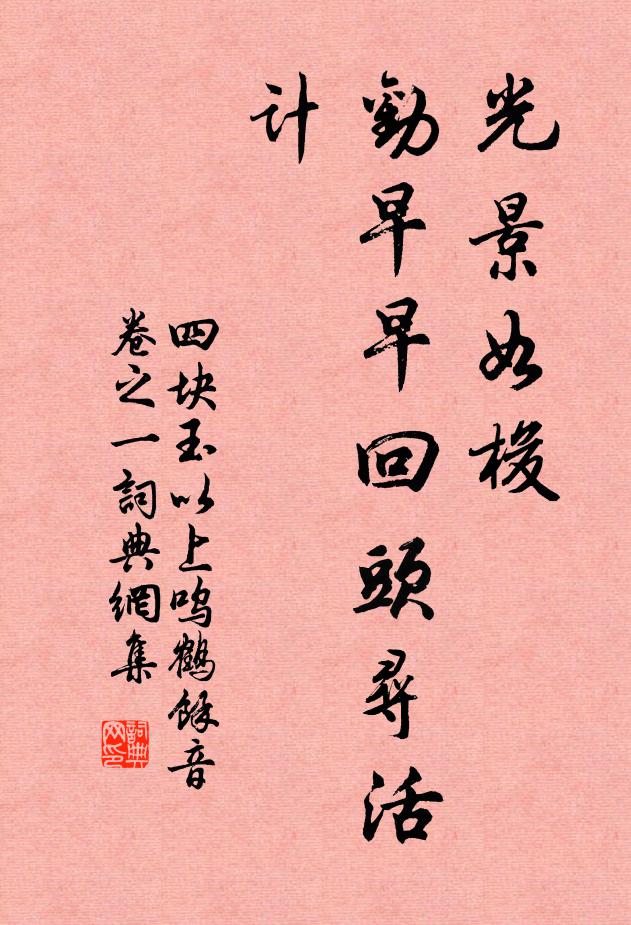 光景如梭
勸早早回頭尋活
计
四块玉以上鸣鶴餘音
卷之一詞典網集
詞典
网印